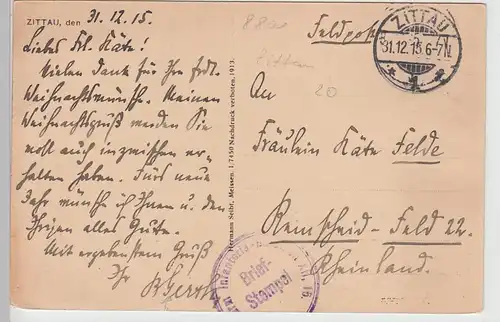 ZITTAU, den 31.12.15.
Liebes Frl. Käte!
Vielen Dank für Ihre frdl.
Weihnachtswünsche. Meinen
Weihnachtsgruß werden Sie
wohl auch inzwischen er-
halten haben. Fürs neue
Jahr wünsche ich Ihnen u. den
Ihrigen alles Gute.
Mit ergebenstem Gruß
Ihr
Hermann Seibt, Meissen. 1.7450 Nachdruck verboten. 1913.
Feldpost
ZITTAU
31.12.15.6-7N.
20
An
Fräulein Käte Felde
Remscheid-Feld 22.
Rheinland.
Brief-
Stempel